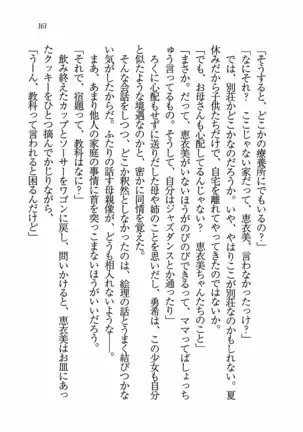 161
「そうすると、どこかの療養所にでもいるの？」
「なにそれ？　ここじゃない家だって、恵衣美、言わなかったっけ？」
では、別荘かどこかなのだろうか。いや、やはりここが別荘なのかもしれない。夏
休みだから子供たちだけで、自宅を離れてやってきたのではないか。
「でも、お母さんも心配してるんじゃない？　恵衣美ちゃんたちのこと」
「まさか。だって、恵衣美がいないほうがのびのびできるって、ママってばしょっち
ゅう言ってるもの。そうして、自分はジャズダンスとか通ったり」
ろくに心配もせずに送りだした母や姉のことを思いだし、勇希は、この少女も自分
と似たような境遇なのかと、密かに同情を覚えた。
そんな会話をしつつ、どこか釈然としなかったのは、絵理の話とうまく結びつかな
い気がしたからだ。ふたりの話す母親像が、どうも相入れないような――。
まあ、あまり他人の家庭の事情に首を突っこまないほうがいいだろう。
「それで、宿題って、教科はなに？」
飲み終えたカップとソーサーをワゴンに戻し、問いかけると、恵衣美はお皿にあっ
たクッキーをひとつ摘んでかじりながら、
「うーん、教科って言われると困るんだけど」